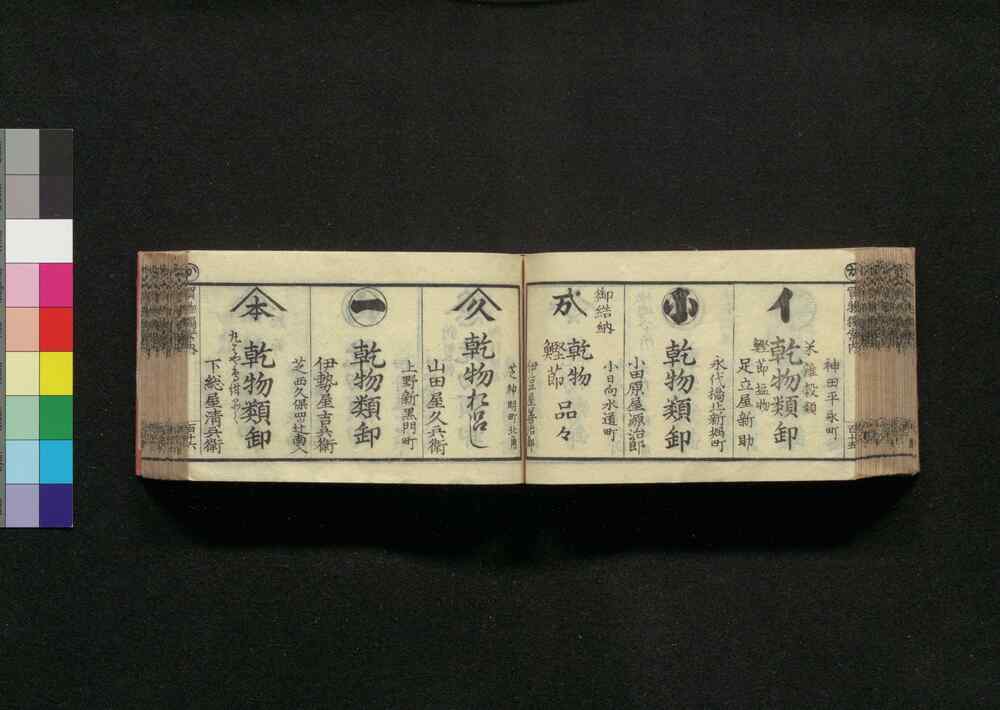 神田平永町
米雑穀類
イ
乾物類卸
鰹節塩物
足立屋新助
永代橋北新堀町
小
乾物類卸
小田原屋源治郎
小日向水道町
御結納
成
乾物
鰹節
品々
伊豆屋善治郎
芝神明町北角
久
乾物おろし
山田屋久兵衛
上野新黒門町
一
乾物類卸
伊勢屋吉兵衛
芝西久保四ツ辻南入
本
乾物類卸
下総屋清兵衛